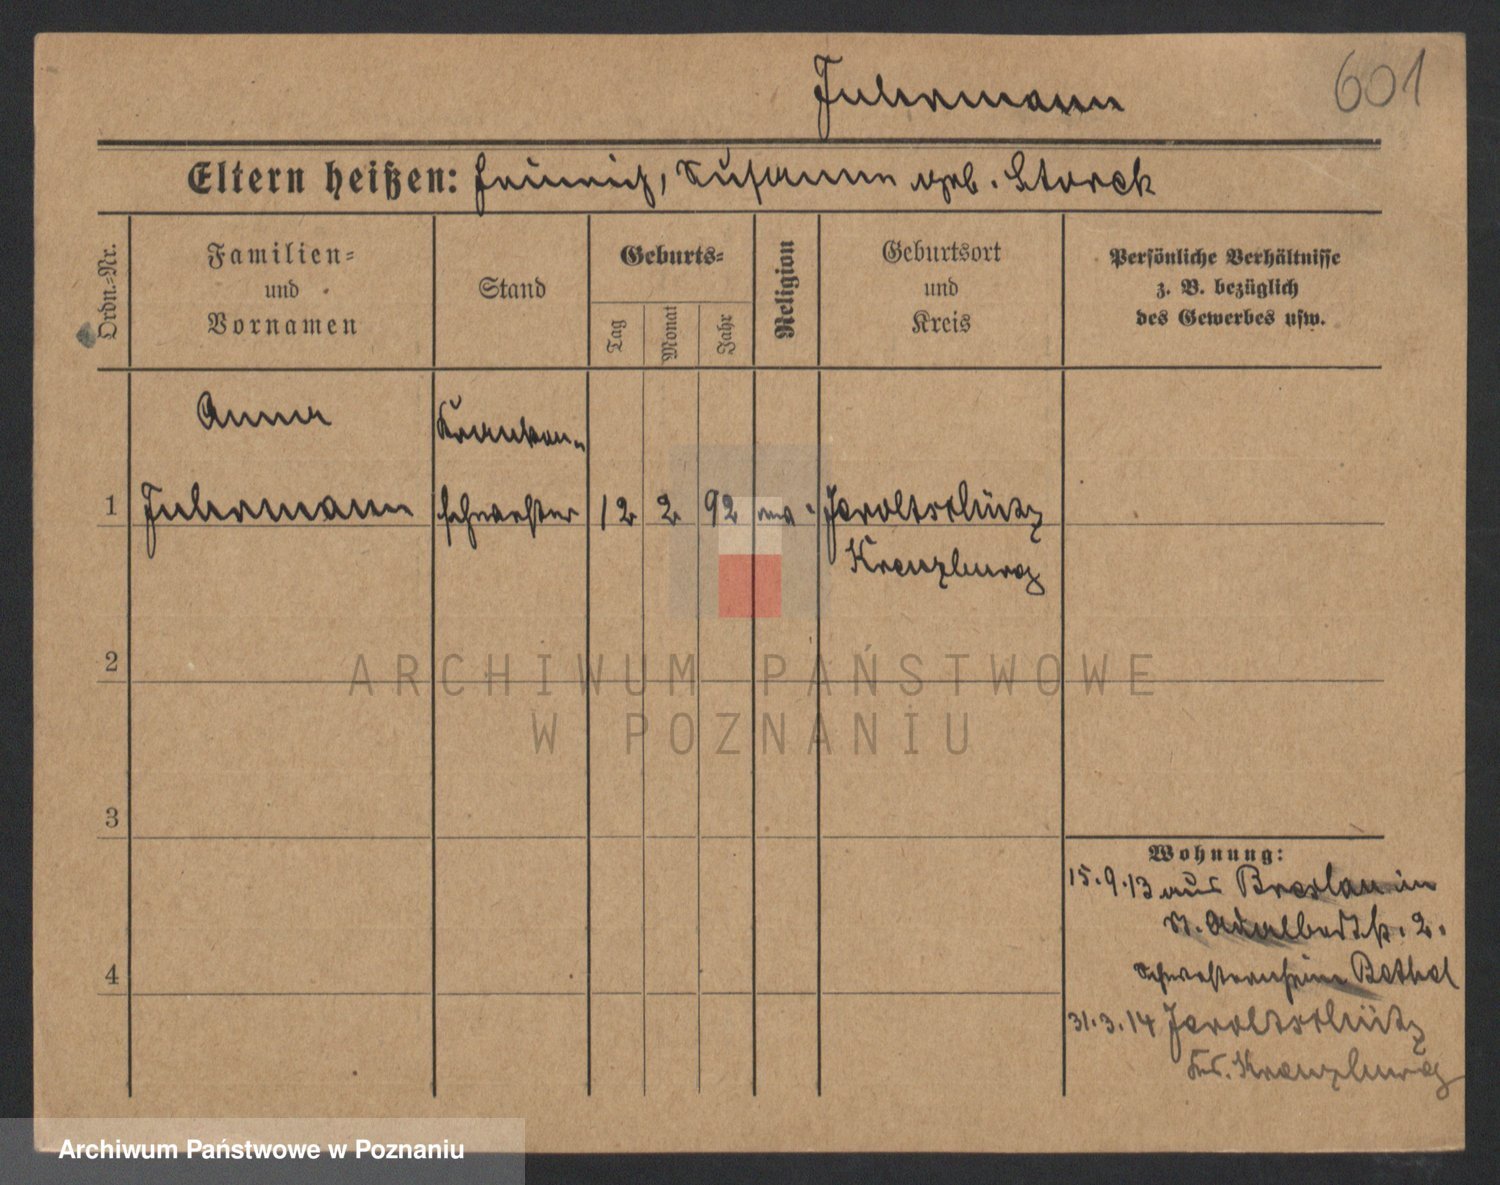 Fuhrmann
601
Eltern heißen: Heinrich, Susanne geb. Storck
Ordn.-Nr.
Familien-
und
Vornamen
Stand
Geburts-
Tag
Monat
Jahr
Religion
Geburtsort
und
Kreis
Persönliche Verhältnisse
z. B. bezüglich
des Gewerbes usw.
Anna
Kranken-
1 Fuhrmann schwester 12 2 92 Jeroltschütz
Kreuzburg
2
ARCHIWUM PAŃSTWOWE
W POZNANIU
3
Wohnung:
15.9.13 aus Breslau in
St. Adalbertstr. 2.
4 Schwesternheim Bethel
31.3.14 Jeroltschütz
Krs. Kreuzburg
Archiwum Państwowe w Poznaniu